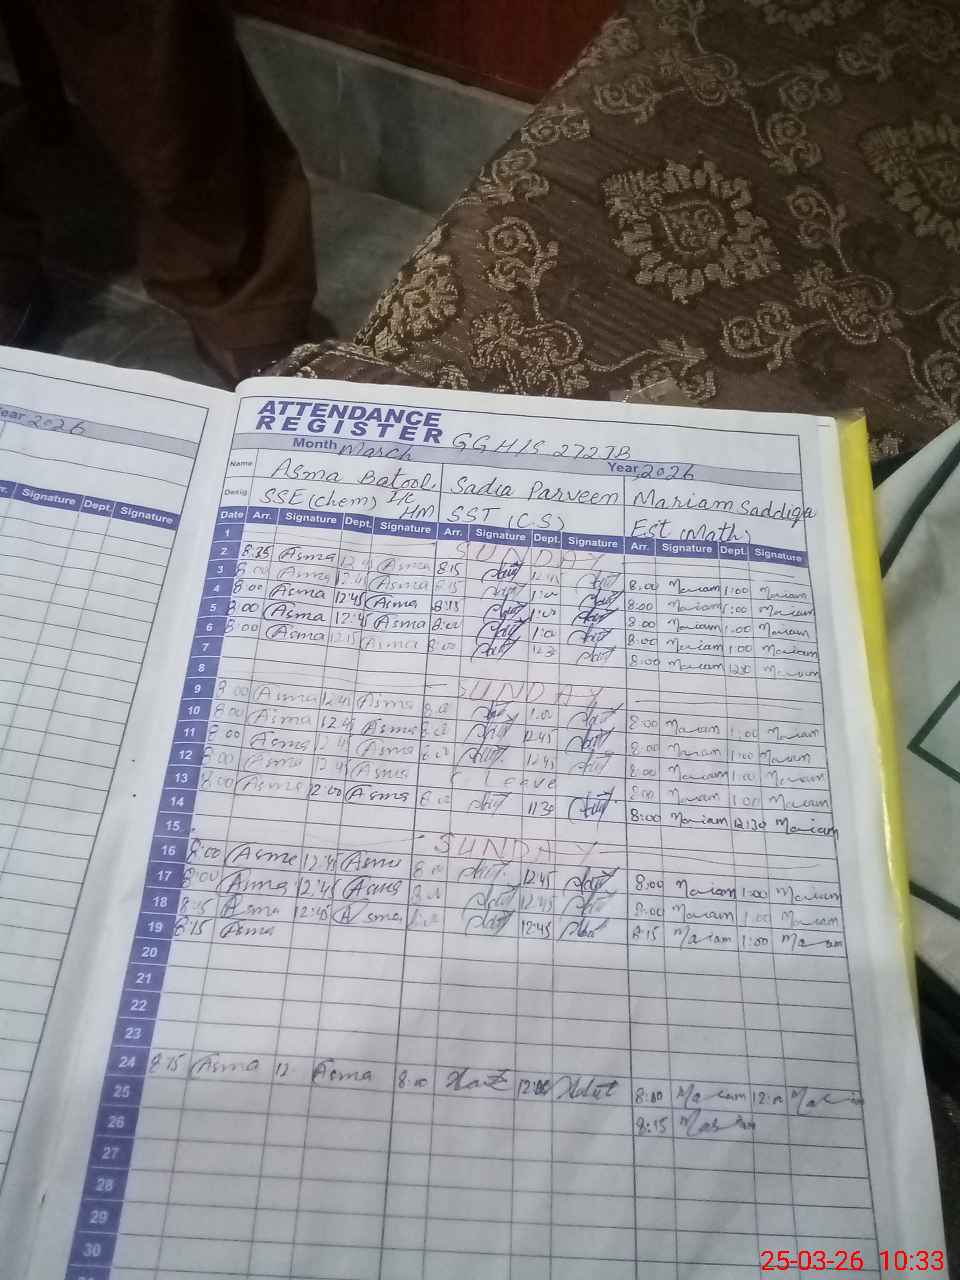 Year 2026
Signature Dept. Signature
ATTENDANCE
REGISTER
GGHS 272TB
Month March Year 2026
Name Asma Batool. Sadia Parveen Mariam Saddiqa
Desig. SSE (Chem) I/C HM SST (C.S) Est (Math)
Date Arr. Signature Dept. Signature Arr. Signature Dept. Signature Arr. Signature Dept. Signature
1 SUNDAY
2 8:35 Asma 12:45 Asma 8:15 12:45 8:00 Mariam 1:00 Mariam
3 8:00 Asma 12:45 Asma 8:15 1:00 8:00 Mariam 1:00 Mariam
4 8:00 Asma 12:45 Asma 8:15 1:00 8:00 Mariam 1:00 Mariam
5 8:00 Asma 12:45 Asma 8:00 1:00 8:00 Mariam 1:00 Mariam
6 8:00 Asma 12:15 Asma 8:00 12:30 8:00 Mariam 12:30 Mariam
7
8 SUNDAY
9 8:00 Asma 12:45 Asma 8:00 1:00 8:00 Mariam 1:00 Mariam
10 8:00 Asma 12:45 Asma 8:00 12:45 8:00 Mariam 1:00 Mariam
11 8:00 Asma 12:45 Asma 8:00 12:45 8:00 Mariam 1:00 Mariam
12 8:00 Asma 12:45 Asma Leave 8:00 Mariam 1:00 Mariam
13 8:00 Asma 12:00 Asma 8:00 11:30 8:00 Mariam 12:30 Mariam
14
15 SUNDAY
16 8:00 Asma 12:45 Asma 8:00 12:45 8:00 Mariam 1:00 Mariam
17 8:00 Asma 12:45 Asma 8:00 12:45 8:00 Mariam 1:00 Mariam
18 8:15 Asma 12:45 Asma 8:00 12:45 8:15 Mariam 1:00 Mariam
19 8:15 Asma
20
21
22
23
24 8:15 Asma 12 Asma 8:00 12:00 8:00 Mariam 12:00 Mariam
25 8:15 Mariam
26
27
28
29
30
25-03-26 10:33